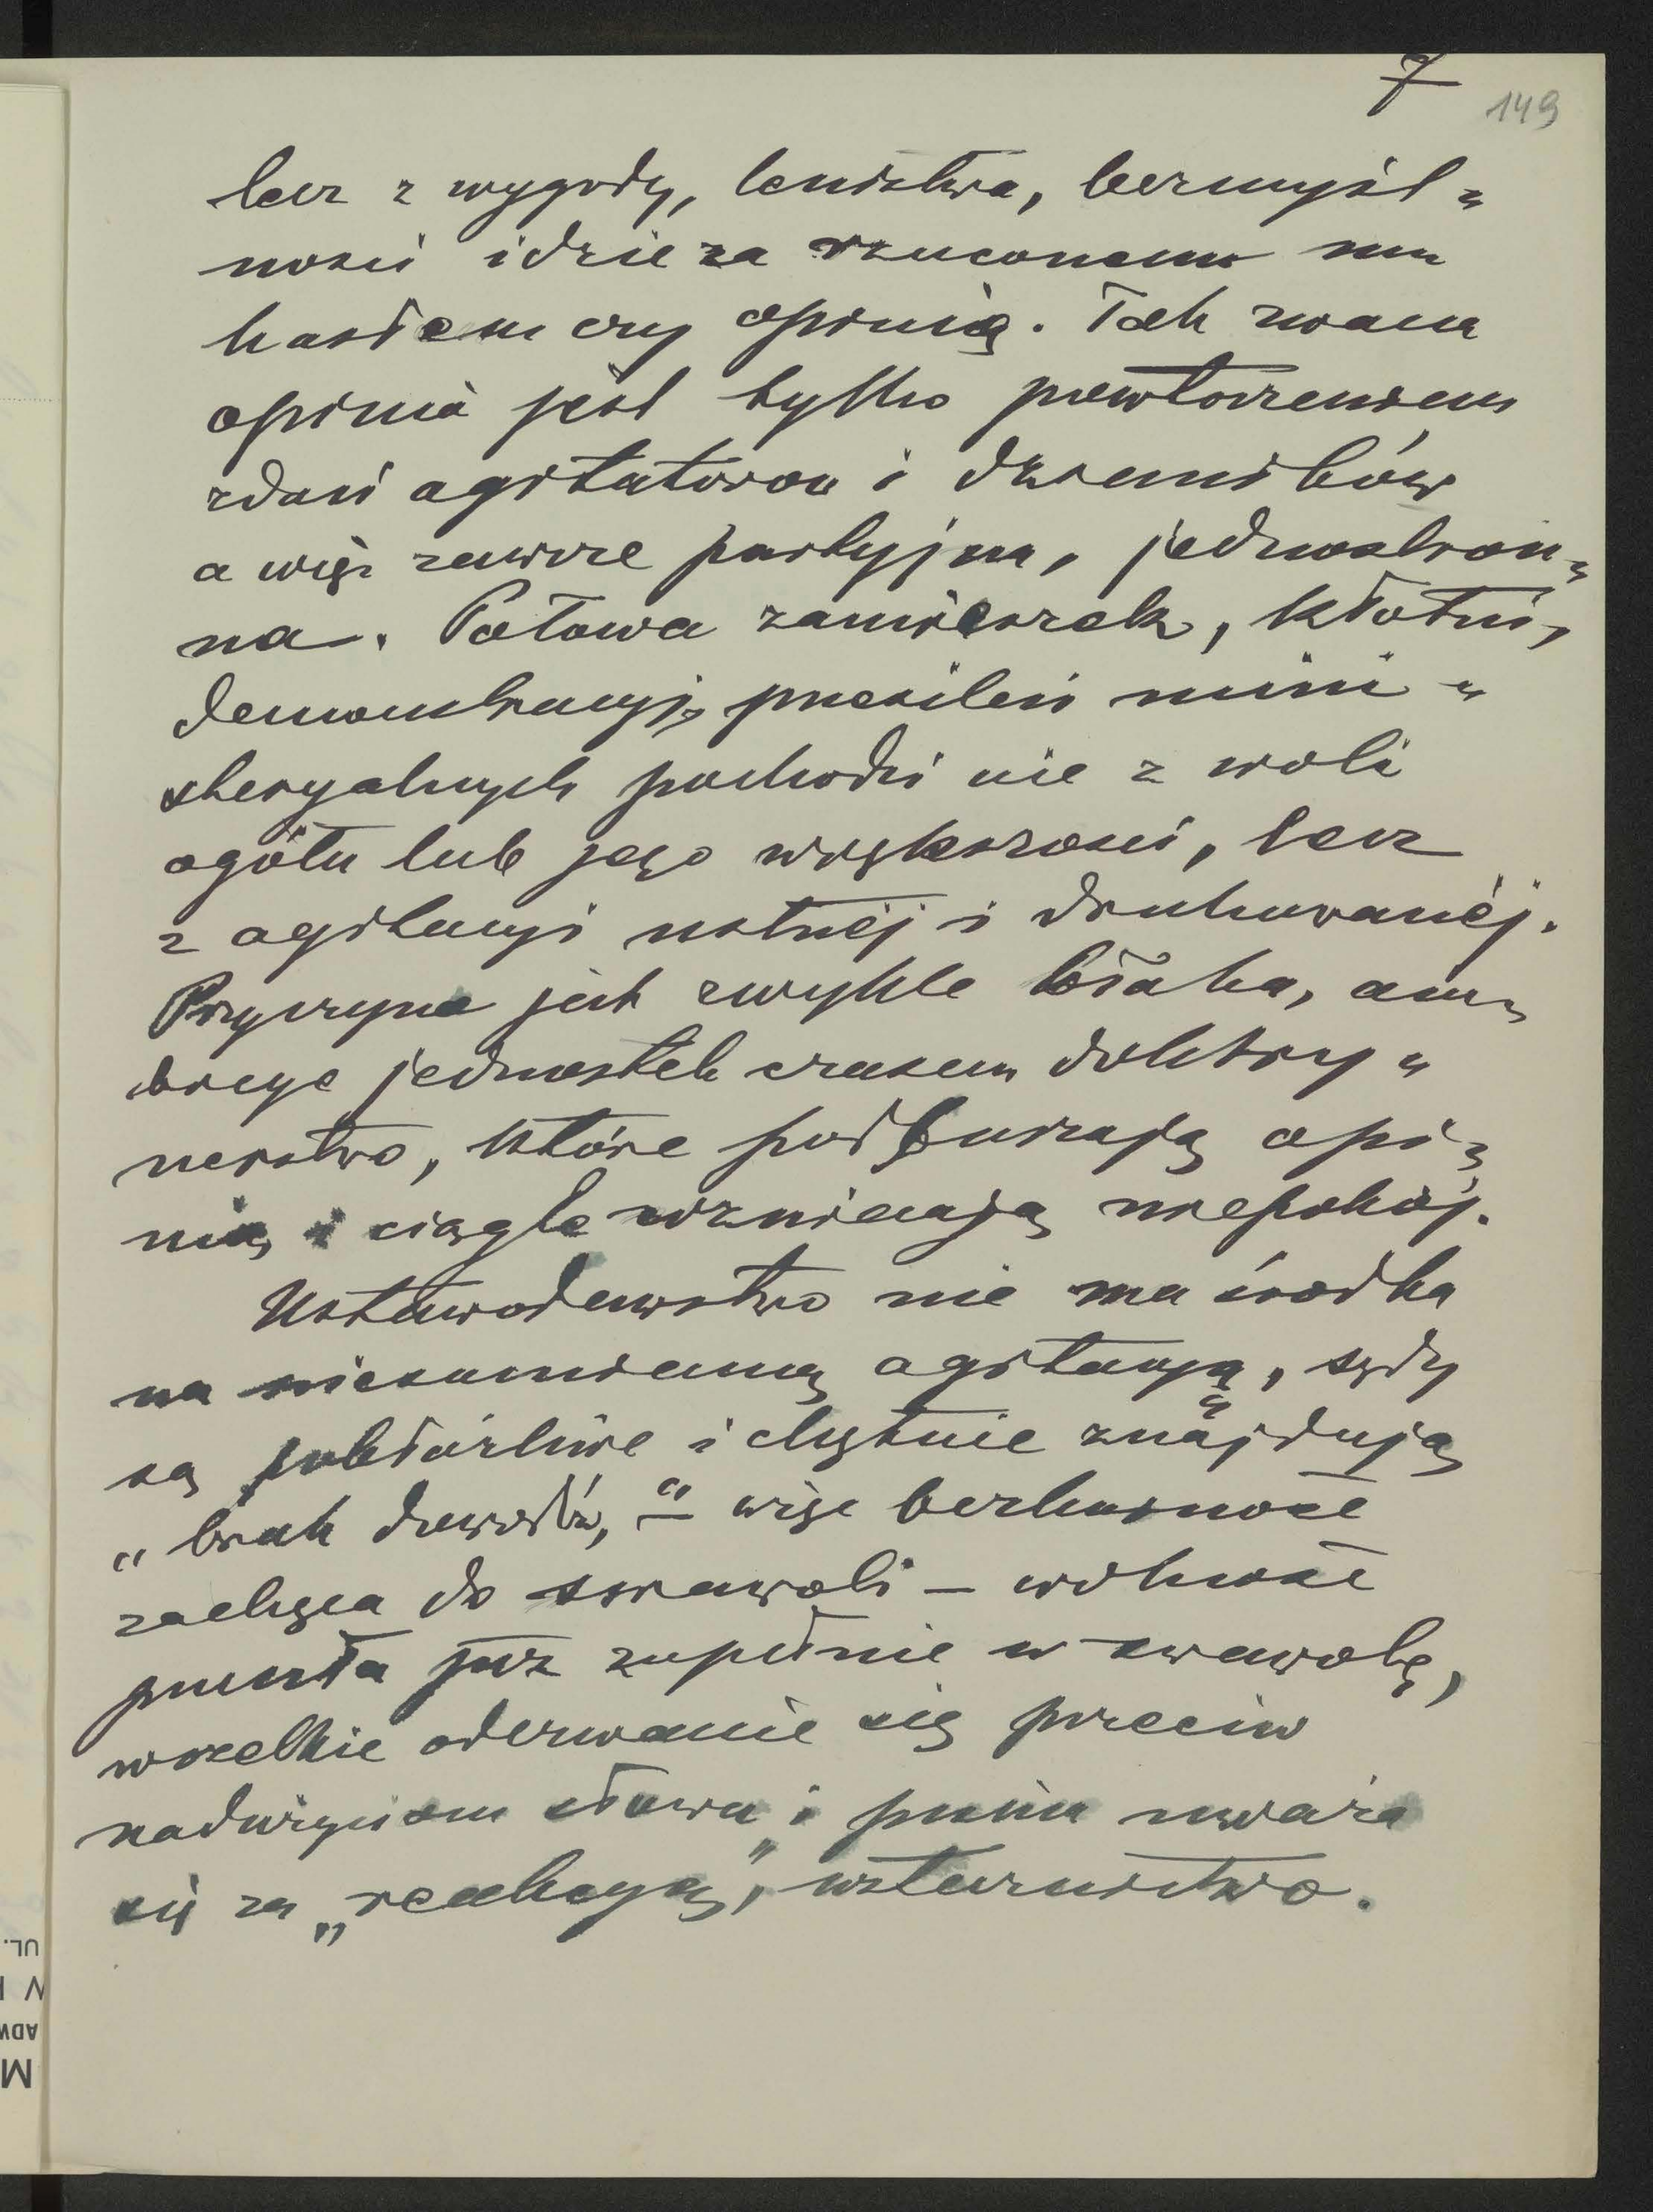 7
149
lecz z wygody, lenistwa, bezmyśl„
ności idzie za rzuconem mu
hasłem czy opinią. Tak zwana
opinia jest tylko powtórzeniem
zdań agitatorów i dzienników
a więc zawsze partyjna, jednostron„
na. Połowa zamieszek, kłótni,
demonstracyj, przesileń mini„
steryalnych pochodzi nie z woli
ogółu lub jego większości, lecz
z agitacyi ustnéj i drukowanéj.
Przyczyna jest zwykle błaha, am„
bicye jednostek czasem doktry„
nerstwo, które podburzają opi„
nią i ciągle wzniecają niepokój.
Ustawodawstwo nie ma środka
na niesumienną agitacyą, sądy
są pobłażliwe i chętnie znajdują
„brak dowodów," – więc bezkarność
zachęca do swawoli – wolność
przeszła już zupełnie w swawolę,
wszelkie oderwanie się przeciw
nadużyciom słowa i pisma uważa
się za „reakcyą", wstecznictwo.
UL.
ADW
M